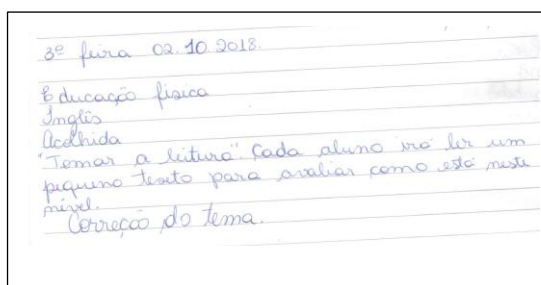 3ª feira 02.10.2018.
Educação física
Inglês
Acolhida
"Tomar a leitura". Cada aluno irá ler um
pequeno texto para avaliar como está neste
nível.
Correção do tema.